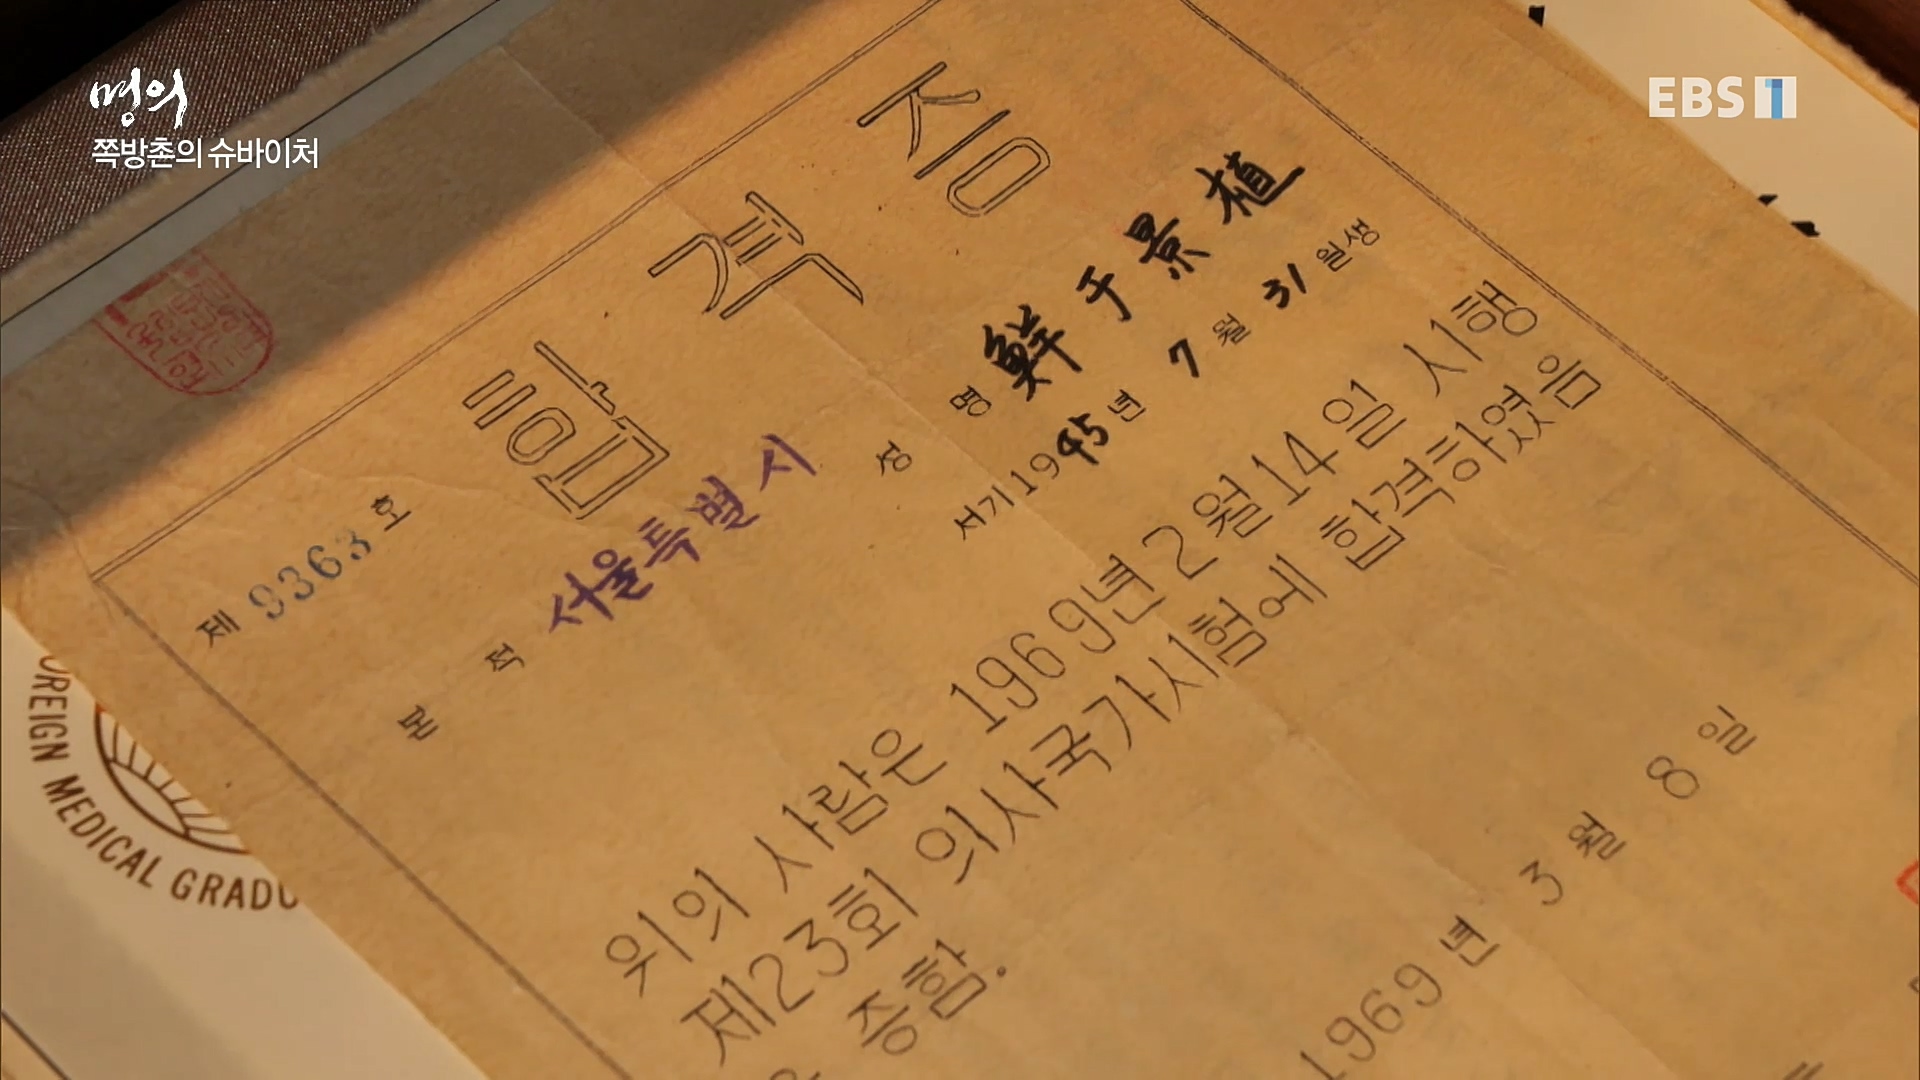 명의
쪽방촌의 슈바이처
EBS 1
합격증
제 9363 호
본 적 서울특별시
성 명 鮮于景植
서기 1945년 7월 31일생
위의 사람은 1969년 2월 14일 시행
제23회 의사국가시험에 합격하였음
증함.
1969년 3월 8일
OREIGN MEDICAL GRADU